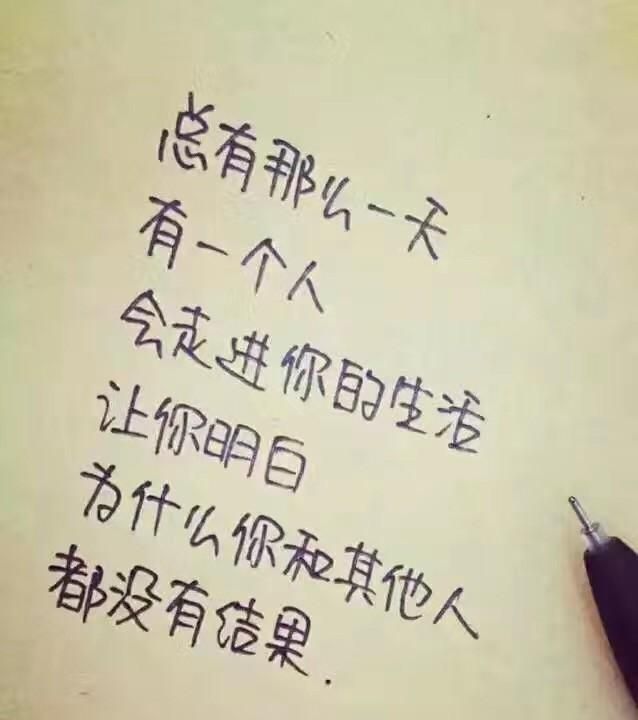 总有那么一天
有一个人
会走进你的生活
让你明白
为什么你和其他人
都没有结果.